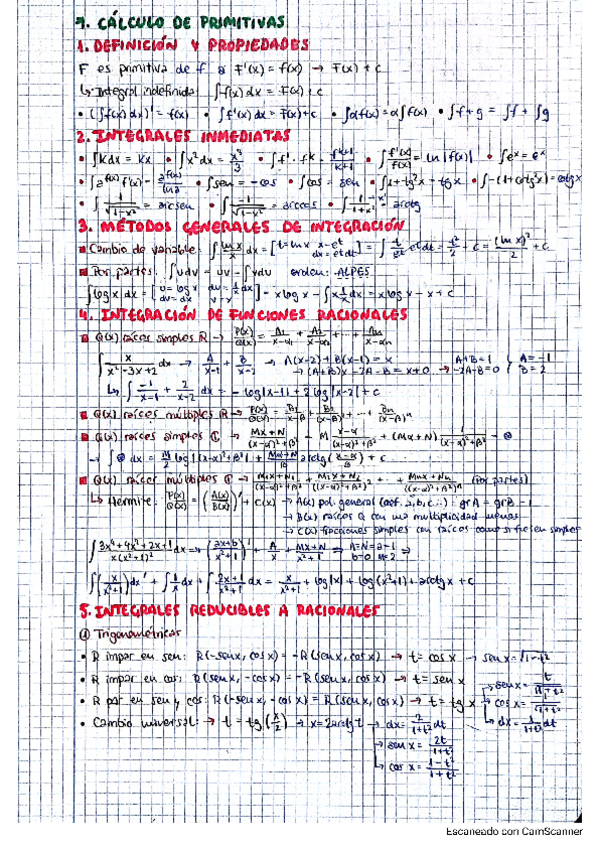 7. CÁLCULO DE PRIMITIVAS
1. DEFINICIÓN Y PROPIEDADES
F es primitiva de f si F'(x) = f(x) → F(x) + c
↳ Integral indefinida: ∫f(x) dx = F(x) + c
• (∫f(x) dx)' = f(x) • ∫f'(x) dx = F(x) + c • ∫αf(x) = α∫f(x) • ∫f + g = ∫f + ∫g
2. INTEGRALES INMEDIATAS
• ∫kdx = kx • ∫x² dx = x³/3 • ∫f' · fk = fk+1/k+1 • ∫f'(x)/f(x) = ln|f(x)| • ∫eˣ = eˣ
• ∫sen = -cos • ∫cos = sen • ∫1+tg²x = tgx • ∫-(1+cotg²x) = cotgx
• ∫1/√1-x² = arcsen • ∫-1/√1-x² = arccos • arctg
3. MÉTODOS GENERALES DE INTEGRACIÓN
Cambio de variable: ∫ln x/x dx = [t = ln x x = eᵗ dx = eᵗdt] = ∫t/eᵗ eᵗdt = t²/2 + c = (ln x)²/2 + c
Por partes: ∫udv = uv - ∫vdu orden: ALPES
∫log x dx = [u = log x du = 1/x dx dv = dx v = x] = x log x - ∫x 1/x dx = x log x - x + c
4. INTEGRACIÓN DE FUNCIONES RACIONALES
Q(x) raíces simples R → P(x)/Q(x) = A₁/x-α₁ + A₂/x-α₂ + ... + Aₙ/x-αₙ
∫x/x²-3x+2 dx → A/x-1 + B/x-2 → A(x-2) + B(x-1) = x → (A+B)x - 2A - B = x + 0 → A+B = 1 -2A-B = 0 A = -1 B = 2
↳ ∫-1/x-1 + 2/x-2 dx = -log|x-1| + 2 log|x-2| + c
Q(x) raíces múltiples R → P(x)/Q(x) = B₁/x-β + B₂/(x-β)² + ... + Bₙ/(x-β)ⁿ
Q(x) raíces simples C → Mx+N/(x-α)²+β² = M x-α/(x-α)²+β² + (Mα+N) 1/(x-α)²+β²
→ ∫ dx = M/2 log|(x-α)²+β²| + Mα+N/β arctg(x-α/β) + c
Q(x) raíces múltiples C → M₁x+N₁/(x-α)²+β² + M₂x+N₂/((x-α)²+β²)² + ... + Mₙx+Nₙ/((x-α)²+β²)ⁿ (Por partes)
↳ Hermite: P(x)/Q(x) = (A(x)/B(x))' + C(x) → A(x) pol. general (coef. a, b, c...): grA = grB - 1
→ B(x) raíces Q con una multiplicidad menos
→ C(x) fracciones simples con raíces como si fuesen simples
∫3x⁴+4x²+2x+1/x(x²+1)² dx → (ax+b/x²+1)' + A/x + Mx+N/x²+1
∫(x/x²+1)dx' + ∫1/x dx + ∫2x+1/x²+1 dx = x/x²+1 + log|x| + log(x²+1) + arctgx + c
5. INTEGRALES REDUCIBLES A RACIONALES
Trigonométricas
• R impar en sen: R(-senx, cosx) = -R(senx, cosx) → t = cos x → senx = √1-t²
• R impar en cos: R(senx, -cosx) = -R(senx, cosx) → t = sen x
• R par en sen y cos: R(-senx, -cosx) = R(senx, cosx) → t = tg x → senx = t/√1+t²
→ cosx = 1/√1+t²
→ dx = 1/1+t² dt
• Cambio universal: → t = tg(x/2) → x = 2arctgt → dx = 2/1+t² dt
→ sen x = 2t/1+t²
→ cos x = 1-t²/1+t²
Escaneado con CamScanner